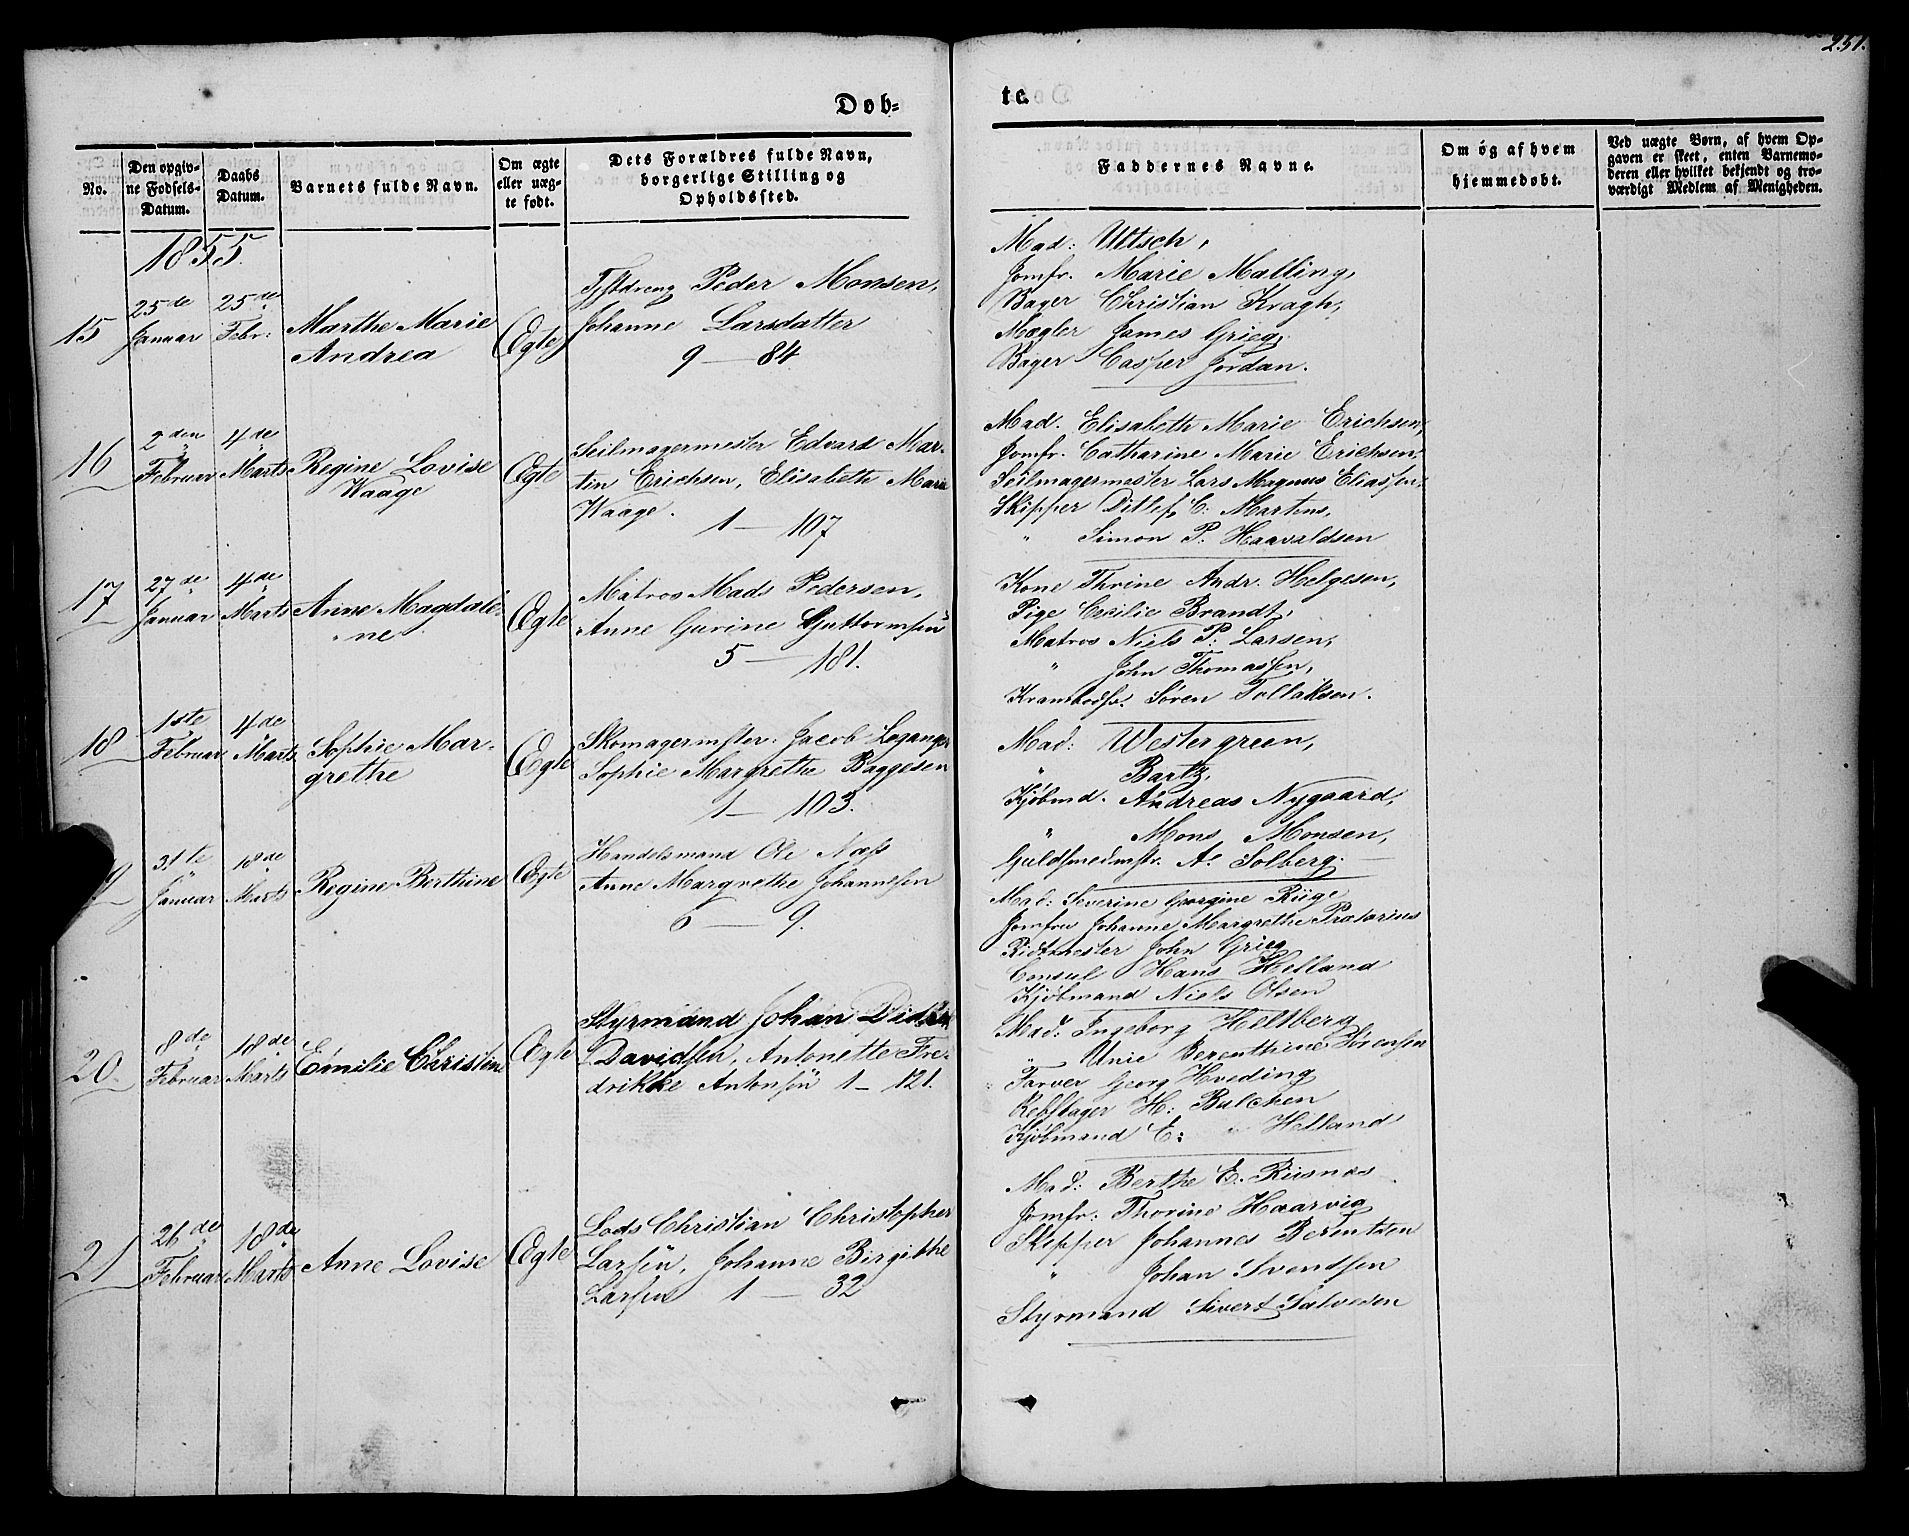 251.
Døb-
te.
No.
Den opgivne Fødsels-Datum.
Daabs Datum.
Barnets fulde Navn.
Om ægte eller uægte født.
Dets Forældres fulde Navn, borgerlige Stilling og Opholdssted.
Faddernes Navne.
Om og af hvem hjemmedøbt.
Ved uægte Børn, af hvem Opgaven er skeet, enten Barnemoderen eller hvilket bekjendt og troværdigt Medlem af Menigheden.
1855.
15
25de Januar
25de Febr:
Marthe Marie
Andrea
Ægte
Peder Monsen,
Johanne Larsdatter
9 — 84
Mad: Ultsch,
Jomfr. Marie Malling,
Bager Christian Kragh,
Mægler James Grieg,
Bager Casper Jordan.
16
2den Februar
4de Marts
Regine Lovise
Waage
Ægte
Seilmagermester Edvard Mar-
tin Erichsen, Elisabeth Marie
Waage.
1 — 107
Mad. Elisabeth Marie Erichsen,
Jomfr. Catharine Marie Erichsen,
Seilmagermester Lars Magnus Eliassen,
Skipper Ditlef C: Martens,
" Simon P. Haavaldsen
17
27de Januar
4de Marts
Anne Magdale-
ne
Ægte
Matros Mads Pedersen,
Anne Gurine Guttormsen
5 — 181.
Kone Thrine Andr. Helgesen,
Pige Cecilie Brandt,
Matros Niels P. Larsen,
" John Thomassen,
Søren Tollaksen.
18
1ste Februar
4de Marts
Sophie Mar-
grethe
Ægte
Skomagermster. Jacob Leganger
Sophie Margrethe Baggesen
1 — 103.
Mad: Westergreen,
" Bartz,
Kjøbmd. Andreas Nygaard,
" Mons Monsen,
Guldsmedmstr. A. Solberg.
9
31te Januar
18de Marts
Regine Berthine
Ægte
Handelsmand Ole Næss
Anne Margrethe Johannesen
6 — 9.
Mad: Severine Georgine Riige
Jomfru Johanne Margrethe Prætorius
Ridtmester John Grieg
Consul Hans Helland
Kjøbmand Niels Olsen
20
8de Februar
18de Marts
Emilie Christine
Ægte
Styrmand Johan Didrik
Davidsen, Antonette Fre-
drikke Antonsen 1 — 121.
Mad: Ingeborg Heltberg
" Unie Berenthine Sørensen
Farver Georg Hveding
Rebslager H: Balchen
Kjøbmand E: Helland
21
26de Februar
18de Marts
Anne Lovise
Ægte
Lods Christian Christopher
Larsen, Johanne Birgitthe
Larsen 1 — 32
Mad: Berthe E. Riisnæs
Jomfr: Thorine Haarvig
Skipper Johannes Berentzen
" Johan Svendsen
Styrmand Sivert Salvesen